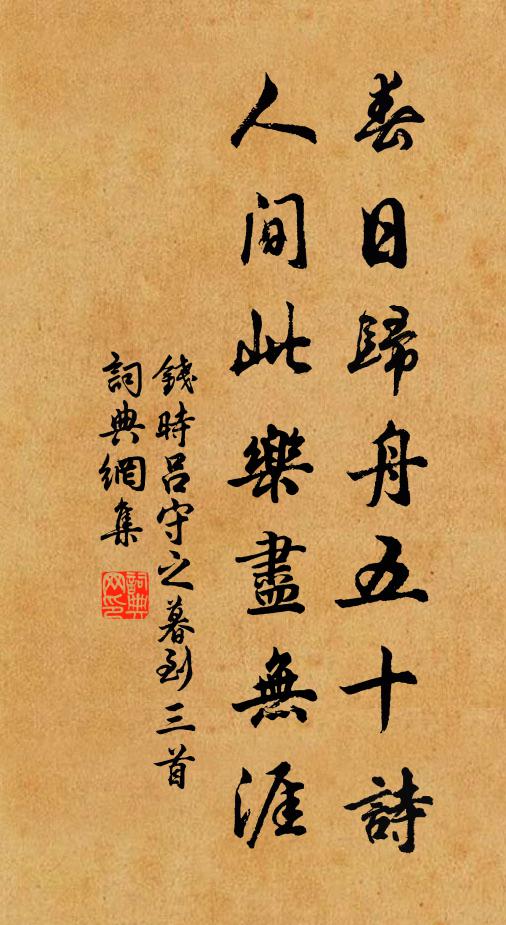 春日歸舟五十詩
人間此樂盡無涯
錢時呂守之暮到三首
詞典網集
詞典網印